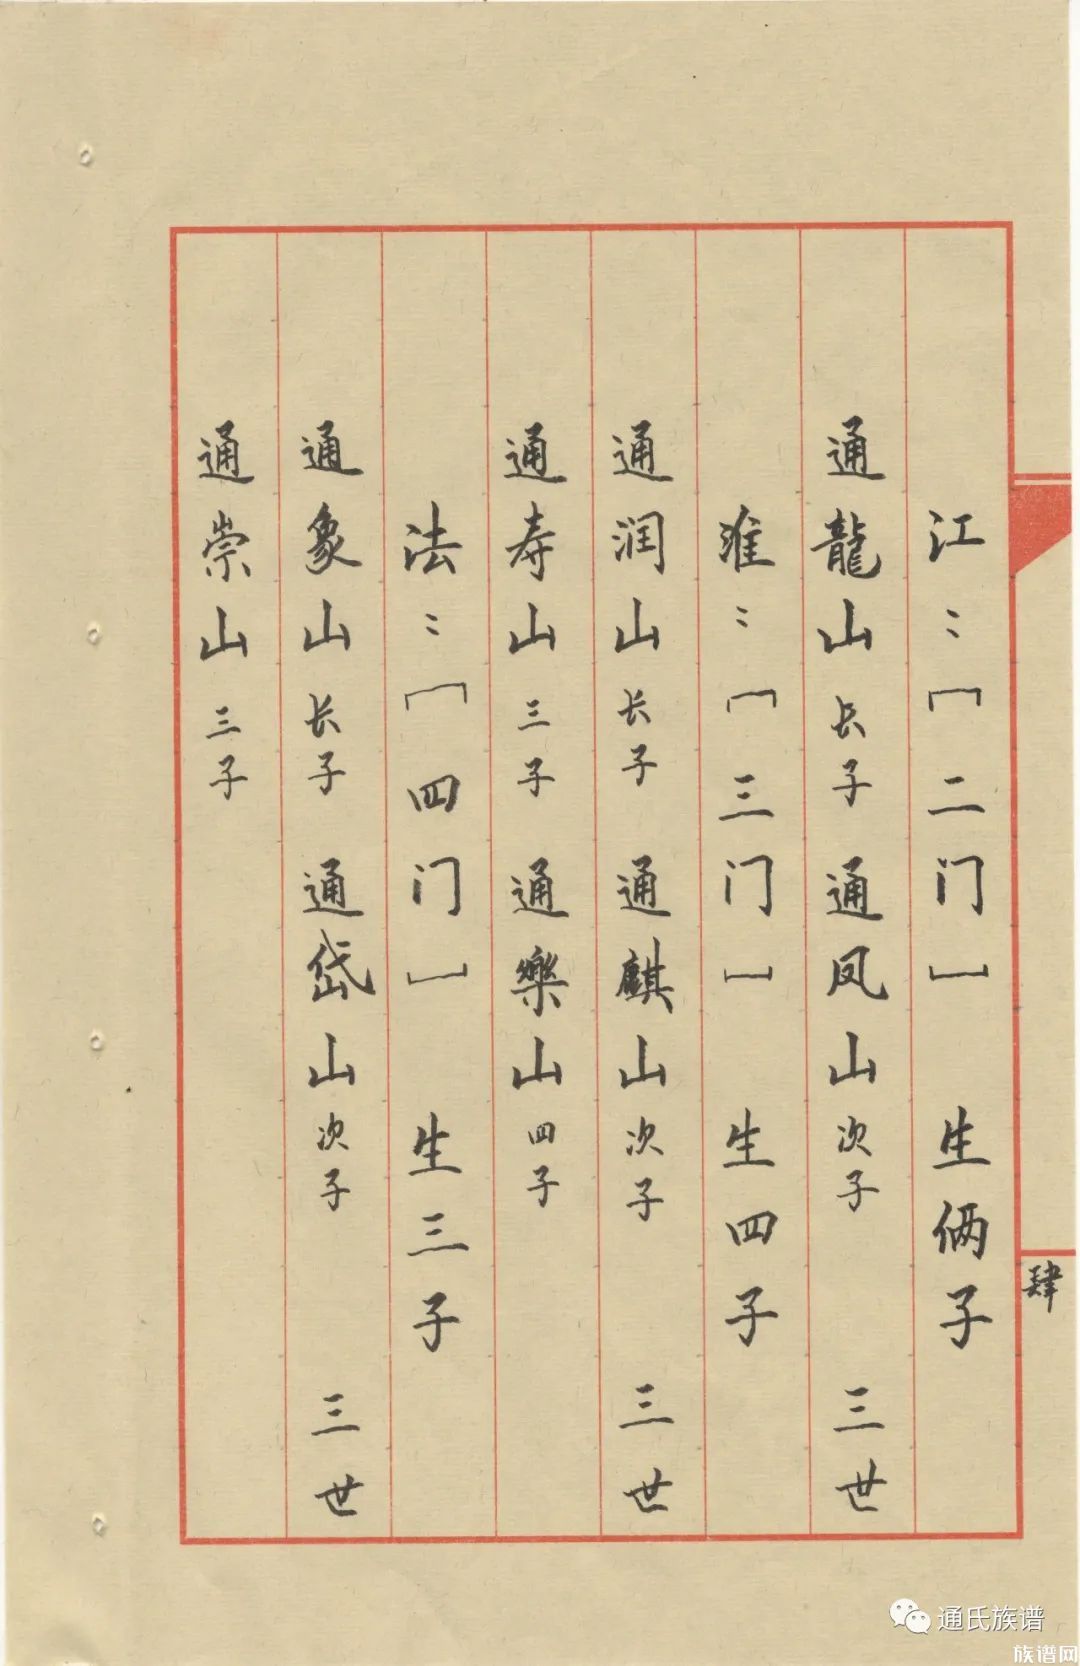 江：［二门］ 生俩子
通龍山 长子 通凤山 次子 三世
淮：［三门］ 生四子
通润山 长子 通麒山 次子 三世
通寿山 三子 通樂山 四子
法：［四门］ 生三子
通象山 长子 通岱山 次子 三世
通崇山 三子
肆
通氏族谱
族谱网